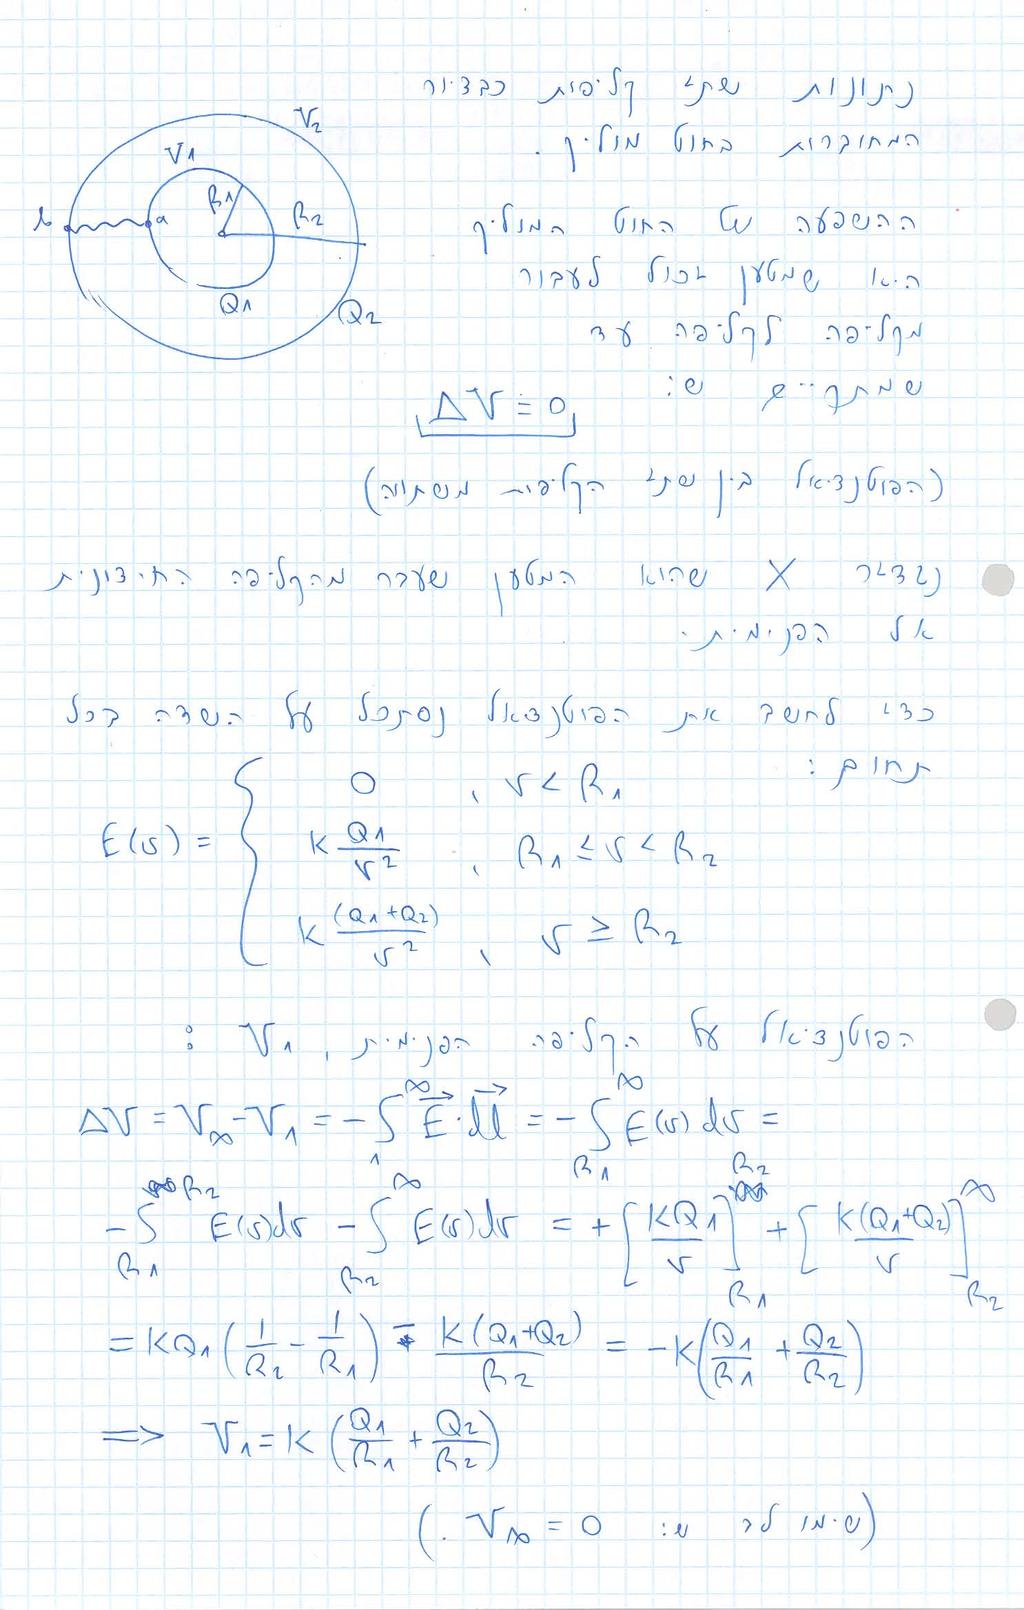 נתונות שתי קליפות כבדיור
המחוברות בחוט מוליך.
V₂
V₁
R₁
R₂
b
a
Q₁
Q₂
ההשפעה של החוט המוליך
היא שמטען יכול לעבור
מקליפה לקליפה עד
שמתקיים ש:
ΔV = 0
(הפוטנציאל בין שתי הקליפות משתווה)
נגדיר X שהוא המטען שעבר מהקליפה החיצונית
אל הפנימית.
כדי לחשב את הפוטנציאל נסתכל על השדה בכל
תחום:
E(r) = { 0 , r < R₁
k Q₁/r² , R₁ ≤ r < R₂
k (Q₁+Q₂)/r² , r ≥ R₂
הפוטנציאל על הקליפה הפנימית, V₁ :
ΔV = V∞ - V₁ = -∫₁^∞ E⃗·dl⃗ = -∫_{R₁}^∞ E(r)dr =
-∫_{R₁}^{R₂} E(r)dr - ∫_{R₂}^∞ E(r)dr = +[kQ₁/r]_{R₁}^{R₂} + [k(Q₁+Q₂)/r]_{R₂}^∞
= kQ₁(1/R₂ - 1/R₁) - k(Q₁+Q₂)/R₂ = -k(Q₁/R₁ + Q₂/R₂)
=> V₁ = k(Q₁/R₁ + Q₂/R₂)
(שימו לב ש: V∞ = 0 .)